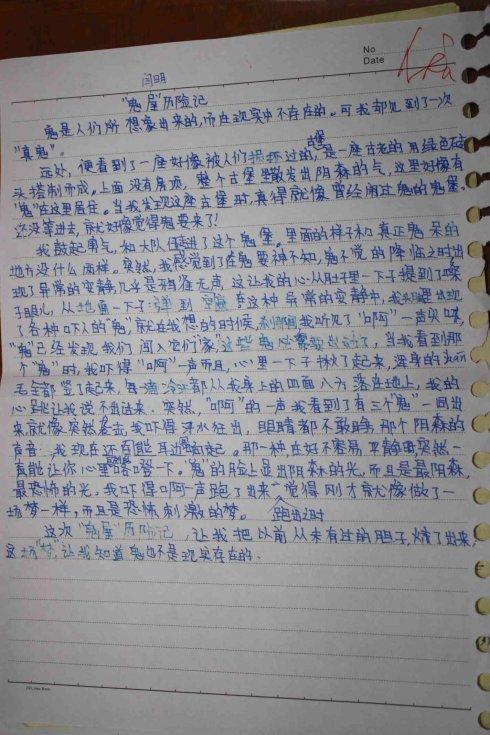 No
Date
闫明
"鬼屋"历险记
鬼是人们所想象出来的,而在现实中不存在的。可我却见到了一次
"真鬼"。
远处,便看到了一座好像被人们损坏过的,古堡是一座古老的用绿色砖
头搭制而成。上面没有房顶,整个古堡散发出阴森的气,这里好像有
"鬼"在这里居住。当我发现这座古堡时,真得就像曾经闹过鬼的鬼堡。
还没等进去,就好像觉得鬼要来了!
我鼓起勇气,和大队伍进了这个鬼堡。里面的样子和真正鬼呆的
地方没什么两样。突然,我感觉到了在鬼要神不知,鬼不觉的降临之时出
现了异常的安静,几乎是鸦雀无声,这让我的心从肚子里一下子提到了嗓
子眼儿,从地面一下子弹到空
在这种异常的安静中,我
出现
了各种吓人的"鬼"就在我想的时候,刹那间我听见了"啊"一声尖叫,
"鬼"已经发现我们闯入它们家,这些鬼
出动了,当我看到那
个"鬼"时,我吓得"啊"一声而且,心里一下子揪了起来,浑身的han
毛全部竖了起来,每一滴冷汗都从我身上的四面八方落在地上,我的
心到让我说不出话来。突然,"啊"的一声我看到了有三个"鬼"一同出
来,就像突然袭击,我吓得汗水狂出,眼睛都不敢睁,那个阴森的
声音,我现在还有能耳边响起。那一种,在好不容易平静里,突然一
真能让你心里咯噔一下。"鬼"的脸上显出阴森的光,而且是最阴森,
最恐怖的光。我吓得"啊"一声跑了出来,跑出之时觉得刚才就像做了一
场梦一样,而且是恐怖刺激的梦。
这次"鬼屋"历险记,让我把以前从未有过的胆子,
了出来,
这场"梦",让我知道鬼也不是现实存在的.